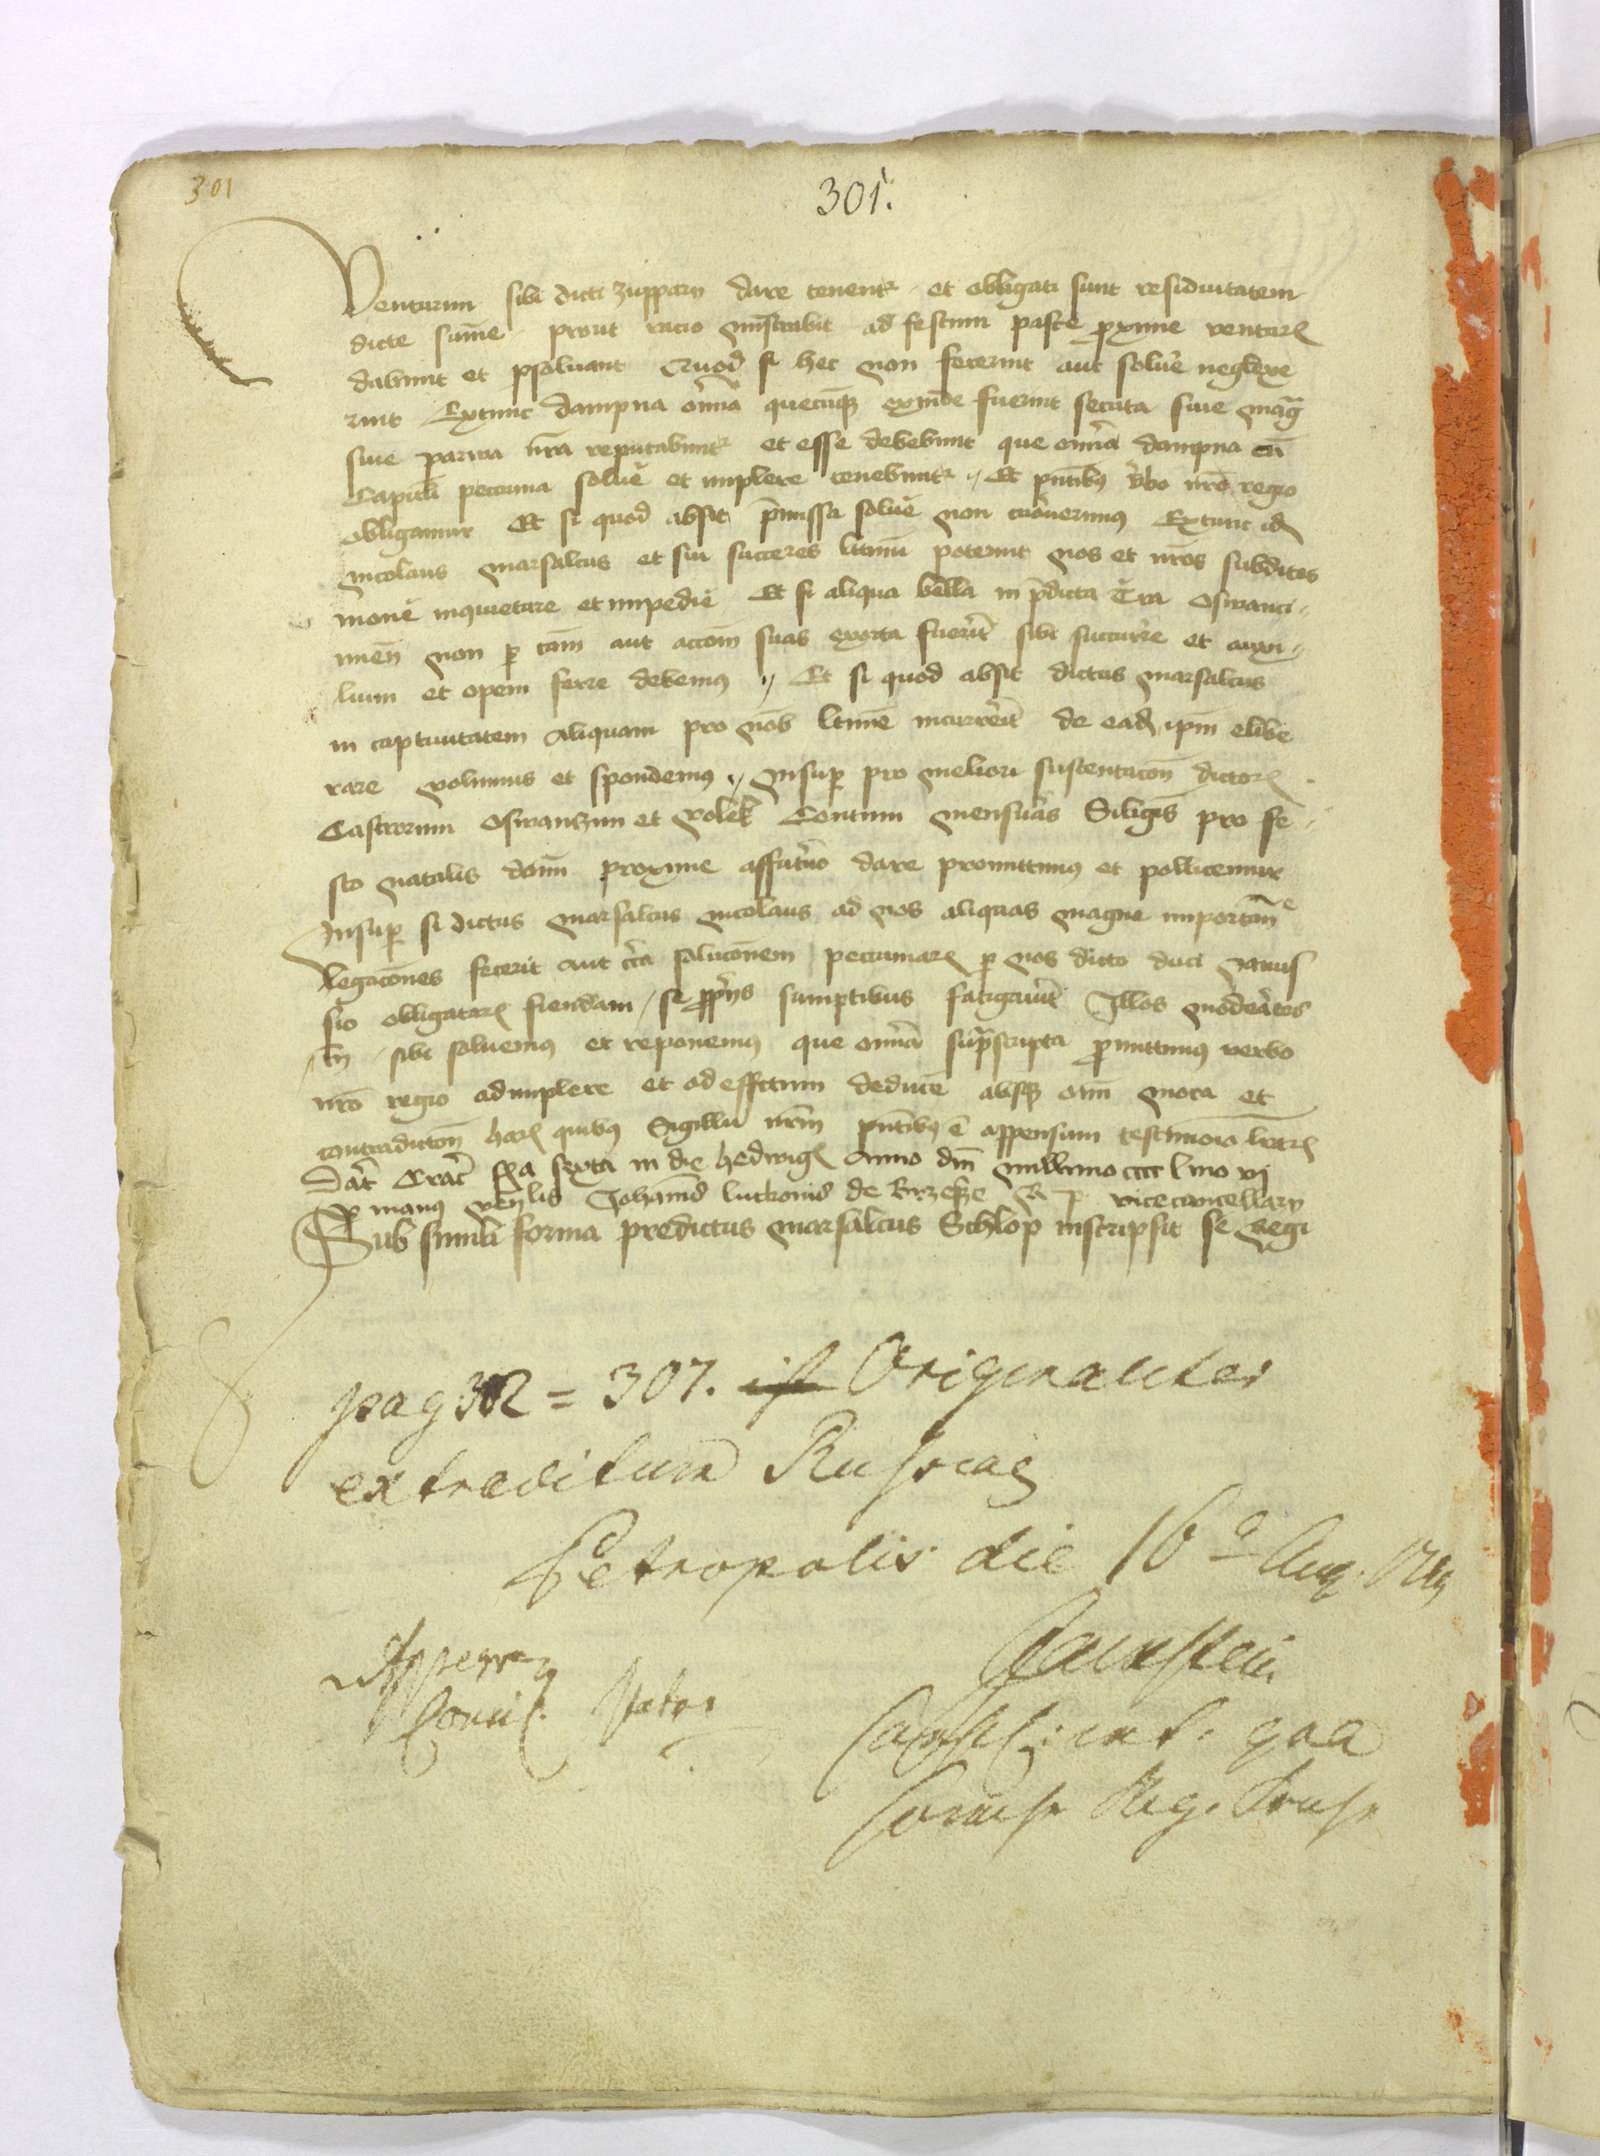 301
301.
Venturum sibi dicti zupparij dare tenentr et obligati sunt residuitatem
dicte sum̄e prout racio ministrabit ad festum pasce proxime ventur
dabunt et psoluant Quod si hec non fecerint aut solue neglexe
rint Extunc dampna omīa quecūqz exinde fuerint secuta siue mag
siue parua nr̄a reputabuntr et esse debebunt que omīa dampna cū
Capitali pecunia solue et implere tenebuntr Et pn̄tibus vbo nr̄o regio
obligamur Et si quod absit p̄missa solue non curauerimus Extunc id
Nicolaus marsalcus et sui succeres ltimi poterint nos et nr̄os subditos
monē inquietare et impedie Et si aliqua bella in p̄dicta Tr̄a Oswanci
men̄ non p cām aut accōm suas exorta fuerīt sibi succurrē et auxi
lium et opem ferre debemus Et si quod absit dictus marsalcus
in captiuitatem aliquam pro nob̄ ltime incurrerit de ead ip̄m elibe
rare volumus et spondemus Insup pro meliori sustentacōn dictor
Castrorum Oswanczim et Volek Centum mensuras Siliginis pro fe
sto natalis domī proxime affuturo dare promittimus et pollicemur
Insup si dictus marsalcus Nicolaus ad nos aliquas magne importan̄e
legacōnes fecerit aut circa solucōnem pecuniar p nos dicto duci Janus
sio obligatar fiendam se pprijs sumptibus fatigauit Illos moderatos
tn̄ sibi soluemus et reponemus que omīa suprascripta promittimus verbo
nr̄o regio adimplere et ad effectum deducē absqz omī mora et
contradictōn har quibus Sigillū nr̄m pn̄tibus ē appensum testimōio litr̄ar
Dat Crac fia sexta in die hedwig Anno dn̄i millīmo cccc lmo vj
p manus ven̄lis Johannis lutkonis de Brzesze R P vicecancellarij
Sub simili forma predictus marsalcus Schlop inscripsit se Regi
pag 302 = 307. Originaliter
extraditum Russiae
Petropolis die 16 a Aug.